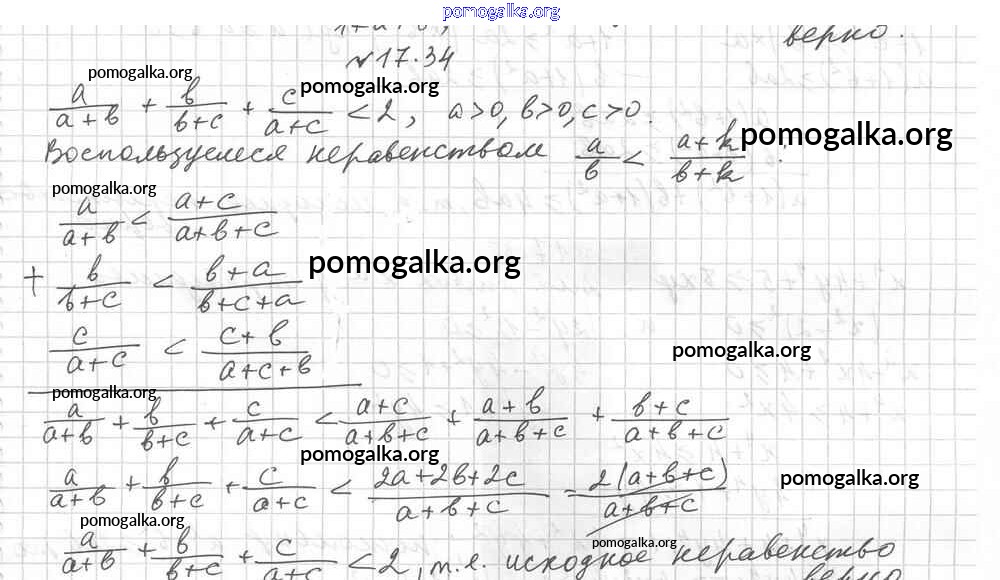 pomogalka.org
верно.
№17.34
pomogalka.org
pomogalka.org
a/(a+b) + b/(b+c) + c/(a+c) < 2, a>0, b>0, c>0.
Воспользуемся неравенством a/b < (a+k)/(b+k) :
pomogalka.org
pomogalka.org
a/(a+b) < (a+c)/(a+b+c)
+ b/(b+c) < (b+a)/(b+c+a)
pomogalka.org
c/(a+c) < (c+b)/(a+c+b)
pomogalka.org
pomogalka.org
a/(a+b) + b/(b+c) + c/(a+c) < (a+c)/(a+b+c) + (a+b)/(a+b+c) + (b+c)/(a+b+c)
pomogalka.org
a/(a+b) + b/(b+c) + c/(a+c) < (2a+2b+2c)/(a+b+c) = 2(a+b+c)/(a+b+c)
pomogalka.org
pomogalka.org
pomogalka.org
a/(a+b) + b/(b+c) + c/(a+c) < 2, т.е. исходное неравенство
верно